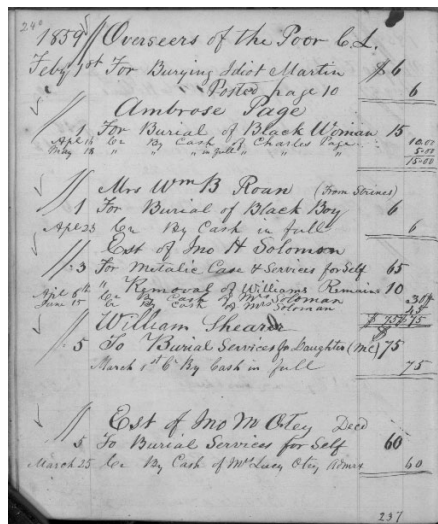 240
1859 // Overseers of the Poor C.L.
Feby 1st For Burying Idiot Martin $6
Posted page 10 6
// Ambrose Page
1 For Burial of Black Woman 15
Apl 16 Cr By Cash of Charles Page 10.00
May 18 " " " in full " " " 5.00
15.00
// Mrs Wm B Roan (From Strines)
1 For Burial of Black Boy 6
Apl 23 Cr By Cash in full 6
// Est of Jno H Solomon
3 For Metalic Case & Services for Self 65
" " Removal of Williams Remains 10
Apl 6th Cr By Cash of Mrs Solomon 30
June 15 Cr By Cash of Mrs Solomon 45
// William Shearer $75 $75
5 To Burial Services for Daughter (MC) 75
March 1st Cr By Cash in full 75
// Est of Jno M Otey Decd
5 To Burial Services for Self 60
March 25 Cr By Cash of Mrs Lucy Otey Admrx 60
237